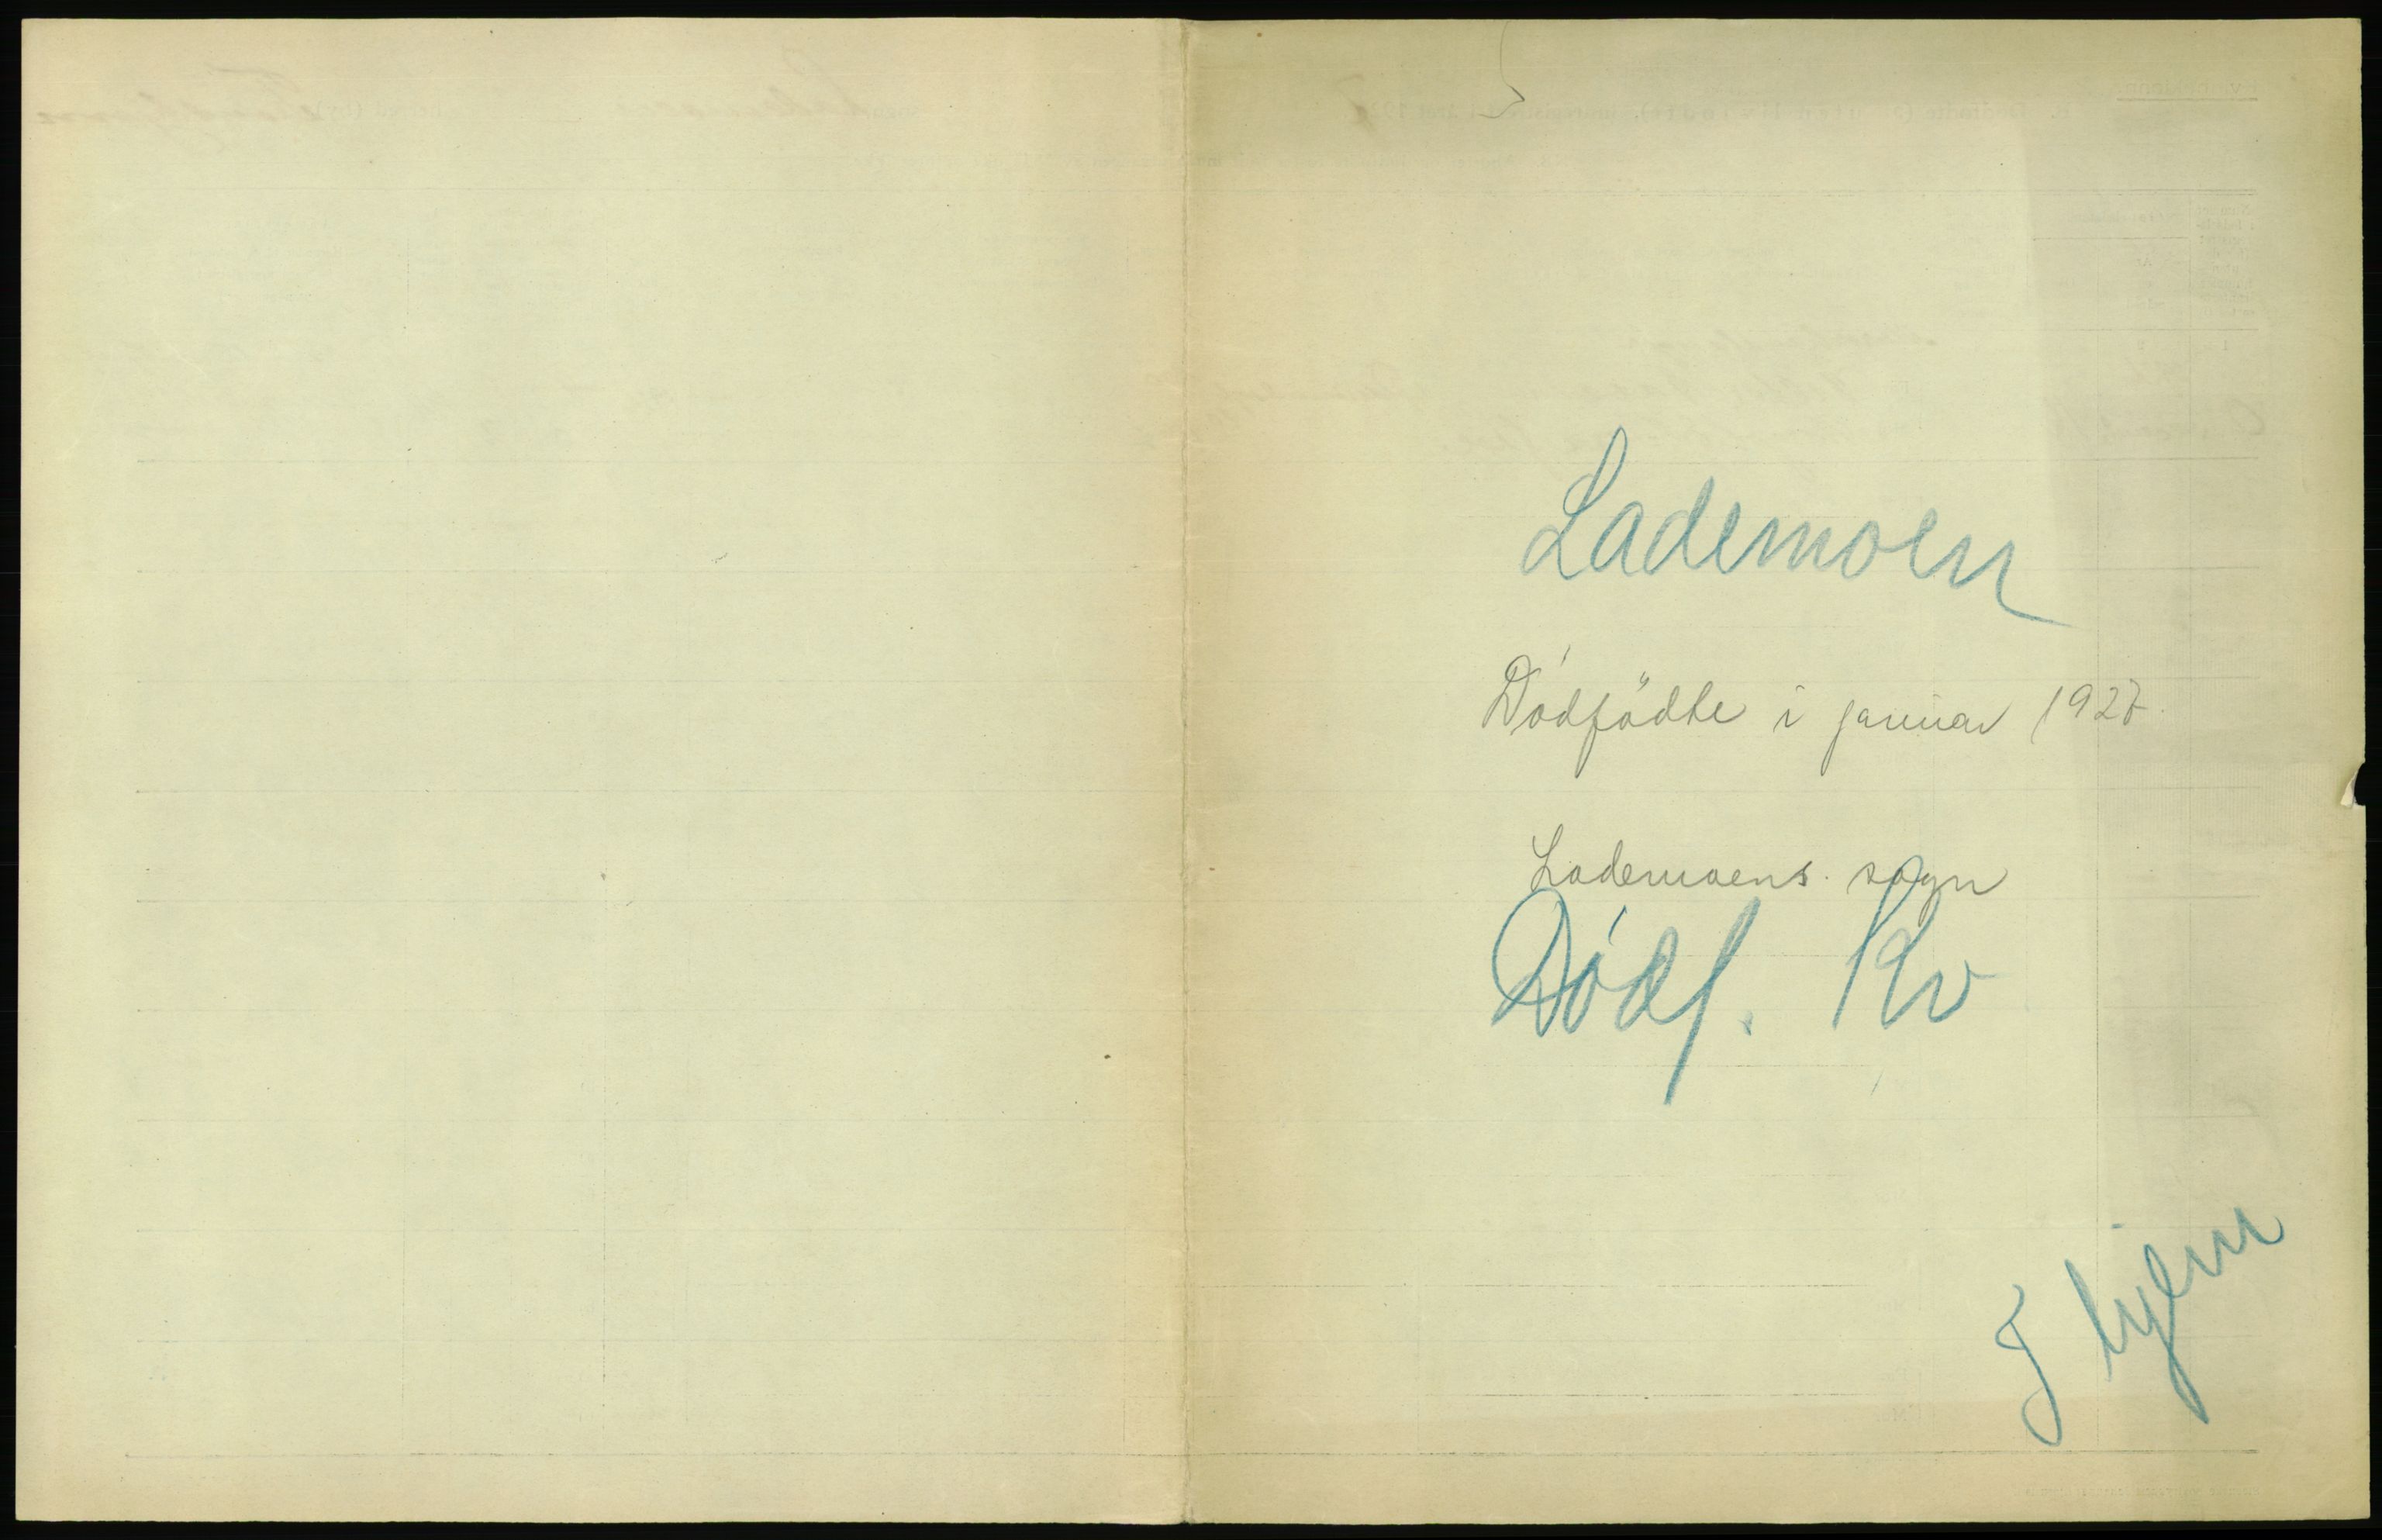 Lademoen
Dödfödte i januar 1927
Lademoens sogn
Dódf. Kv
I hjem